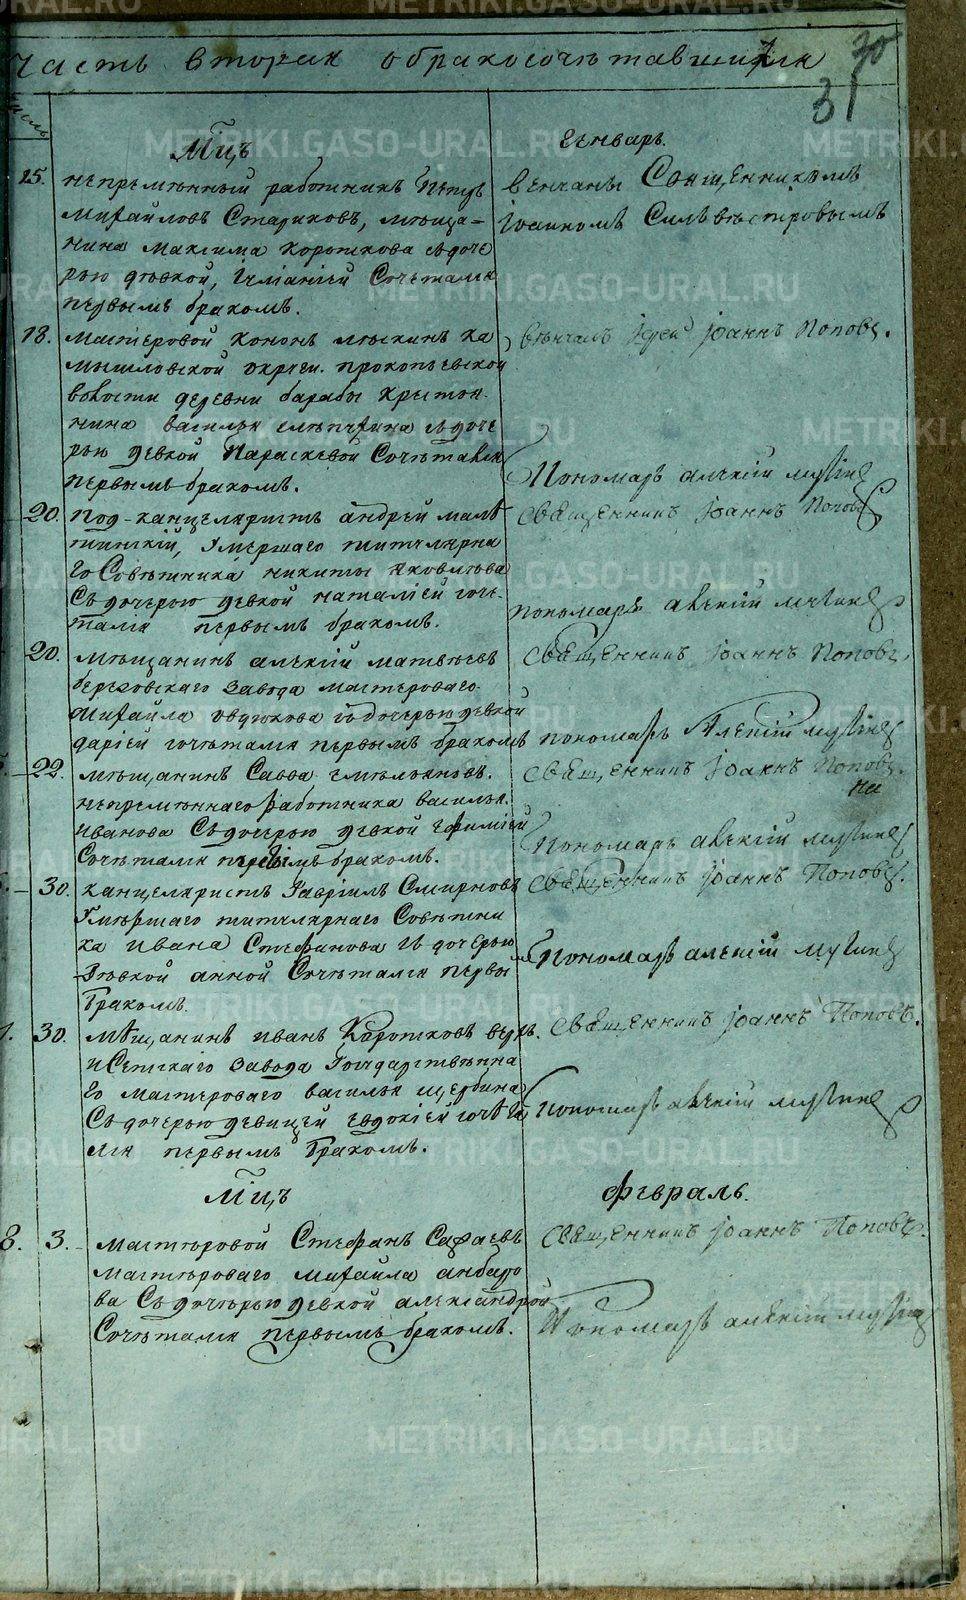 Часть вторая о бракосочетавшихся
30
31
Мцъ
Генварь.
15. непременный работникъ Петръ
Михайловъ Стариковъ, меща=
нина Максима Короткова съ доче
рью девкой, Сочетался
первымъ бракомъ.
венчаны Священникомъ
Iоанномъ Сильвестровымъ
18. мастеровой Кононъ ка
мышловской округи. прокопьевской
волости деревни барабы крестья
нина василья съ доче
рью девкой Параскевой Сочетался
первымъ бракомъ.
венчалъ Iерей Iоаннъ Поповъ.
Пономарь алексiй
20. под-канцеляристъ андрей
умершаго титулярна
го Советника никиты яковлева
Съ дочерью девкой наталiей соче
тался первымъ бракомъ.
священникъ Iоаннъ Поповъ
пономарь алексiй
20. мещанинъ алексiй матвеевъ
березовскаго завода мастероваго
михайла съ дочерью девкой
дарiей сочетался первымъ бракомъ
священникъ Iоаннъ Поповъ.
пономарь Алексiй
22. мещанинъ Савва емельяновъ.
непременнаго работника василья
иванова Съ дочерью девкой Ефимiей
Сочетался первымъ бракомъ.
священникъ Iоаннъ Поповъ.
Пономарь алексiй
30. канцеляристъ Гаврiилъ Смирновъ
Умершаго титулярнаго Советни
ка ивана Стефанова съ дочерью
девкой анной Сочетался первы
бракомъ.
священникъ Iоаннъ Поповъ.
Пономарь алексiй
7. 30. мещанинъ иванъ Коротковъ верхъ
исетскаго завода Государственна
го мастероваго василья щербина
Съ дочерью девицей евдокiей сочета
лся первымъ бракомъ.
священникъ Iоаннъ Поповъ.
Пономарь алексiй
Мцъ
Февраль.
8. 3. мастеровой Стефанъ
мастероваго михайла анбаро
ва Съ дочерью девкой александрой
Сочетался первымъ бракомъ.
священникъ Iоаннъ Поповъ.
Пономарь алексiй
METRIKI.GASO-URAL.RU